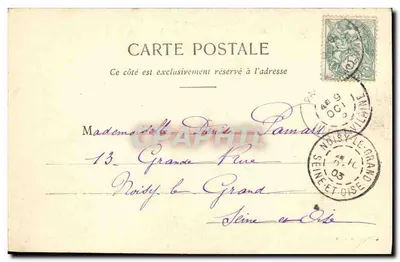 CARTE POSTALE
Ce côté est exclusivement réservé à l'adresse
Mademoiselle Pamart
13 Grande Rue
Noisy le Grand
Seine et Oise
NOISY-LE-GRAND
03
SEINE-ET-OISE